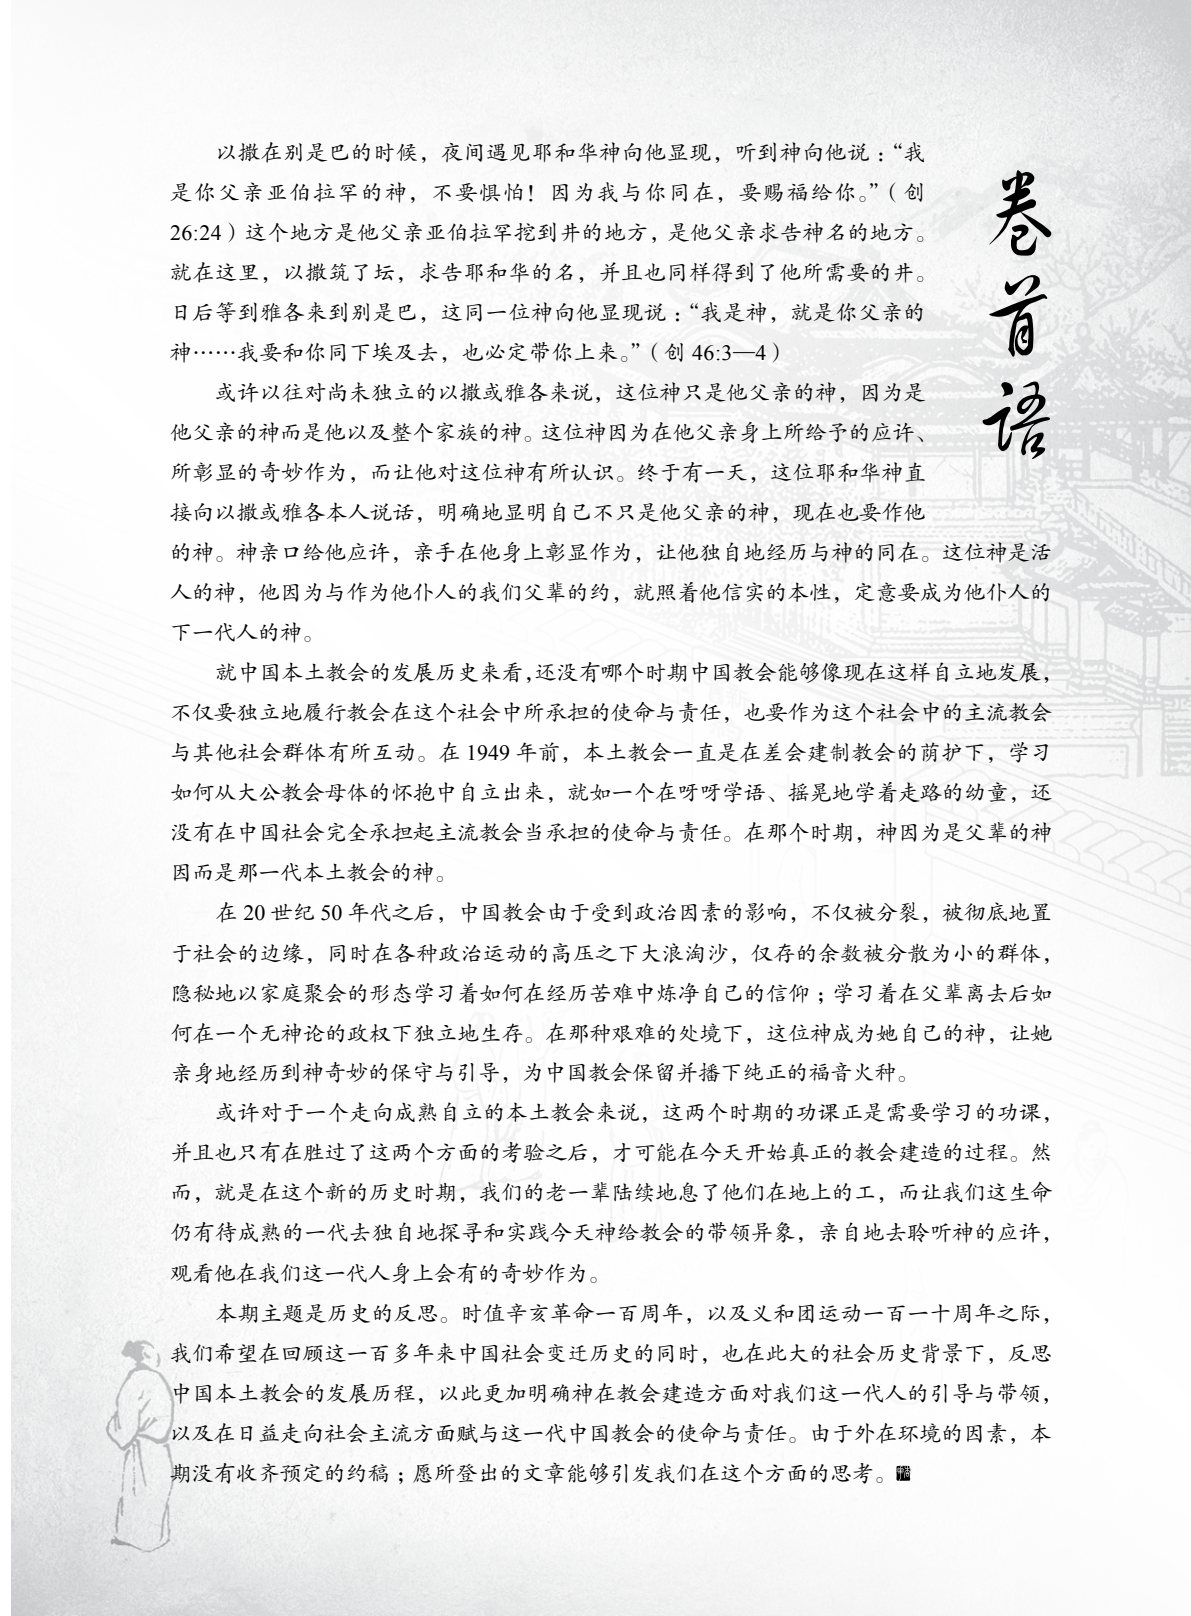 卷首语
以撒在别是巴的时候，夜间遇见耶和华神向他显现，听到神向他说：“我
是你父亲亚伯拉罕的神，不要惧怕！因为我与你同在，要赐福给你。”（创
26:24）这个地方是他父亲亚伯拉罕挖到井的地方，是他父亲求告神名的地方。
就在这里，以撒筑了坛，求告耶和华的名，并且也同样得到了他所需要的井。
日后等到雅各来到别是巴，这同一位神向他显现说：“我是神，就是你父亲的
神……我要和你同下埃及去，也必定带你上来。”（创 46:3—4）
或许以往对尚未独立的以撒或雅各来说，这位神只是他父亲的神，因为是
他父亲的神而是他以及整个家族的神。这位神因为在他父亲身上所给予的应许、
所彰显的奇妙作为，而让他对这位神有所认识。终于有一天，这位耶和华神直
接向以撒或雅各本人说话，明确地显明自己不只是他父亲的神，现在也要作他
的神。神亲口给他应许，亲手在他身上彰显作为，让他独自地经历与神的同在。这位神是活
人的神，他因为与作为他仆人的我们父辈的约，就照着他信实的本性，定意要成为他仆人的
下一代人的神。
就中国本土教会的发展历史来看，还没有哪个时期中国教会能够像现在这样自立地发展，
不仅要独立地履行教会在这个社会中所承担的使命与责任，也要作为这个社会中的主流教会
与其他社会群体有所互动。在 1949 年前，本土教会一直是在差会建制教会的荫护下，学习
如何从大公教会母体的怀抱中自立出来，就如一个在呀呀学语、摇晃地学着走路的幼童，还
没有在中国社会完全承担起主流教会当承担的使命与责任。在那个时期，神因为是父辈的神
因而是那一代本土教会的神。
在 20 世纪 50 年代之后，中国教会由于受到政治因素的影响，不仅被分裂，被彻底地置
于社会的边缘，同时在各种政治运动的高压之下大浪淘沙，仅存的余数被分散为小的群体，
隐秘地以家庭聚会的形态学习着如何在经历苦难中炼净自己的信仰；学习着在父辈离去后如
何在一个无神论的政权下独立地生存。在那种艰难的处境下，这位神成为她自己的神，让她
亲身地经历到神奇妙的保守与引导，为中国教会保留并播下纯正的福音火种。
或许对于一个走向成熟自立的本土教会来说，这两个时期的功课正是需要学习的功课，
并且也只有在胜过了这两个方面的考验之后，才可能在今天开始真正的教会建造的过程。然
而，就是在这个新的历史时期，我们的老一辈陆续地息了他们在地上的工，而让我们这生命
仍有待成熟的一代去独自地探寻和实践今天神给教会的带领异象，亲自地去聆听神的应许，
观看他在我们这一代人身上会有的奇妙作为。
本期主题是历史的反思。时值辛亥革命一百周年，以及义和团运动一百一十周年之际，
我们希望在回顾这一百多年来中国社会变迁历史的同时，也在此大的社会历史背景下，反思
中国本土教会的发展历程，以此更加明确神在教会建造方面对我们这一代人的引导与带领，
以及在日益走向社会主流方面赋与这一代中国教会的使命与责任。由于外在环境的因素，本
期没有收齐预定的约稿；愿所登出的文章能够引发我们在这个方面的思考。